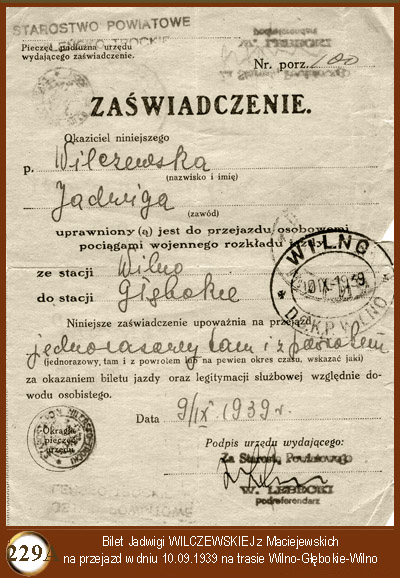 STAROSTWO POWIATOWE
TROCKIE
Pieczęć nadłużna urzędu
wydającego zaświadczenie.
W. LEBECKI
Za Starostę Powiatowego
Nr. porz. 100
ZAŚWIADCZENIE.
Okaziciel niniejszego
p. Wilczewska
(nazwisko i imię)
Jadwiga
(zawód)
uprawniony (a) jest do przejazdu osobowemi
pociągami wojennego rozkładu jazdy
ze stacji Wilno
do stacji Głębokie
WILNO
10 IX 1939
D.O.K.P. WILNO
Niniejsze zaświadczenie upoważnia na przejazd
jednorazowy tam i z powrotem
(jednorazowy, tam i z powrotem lub na pewien okres czasu, wskazać jaki)
za okazaniem biletu jazdy oraz legitymacji służbowej względnie do-
wodu osobistego.
Data 9/IX 1939 r.
Okrągła
pieczęć
urzędu
Podpis urzędu wydającego:
Za Starostę Powiatowego
W. LEBECKI
podreferendarz
229
Bilet Jadwigi WILCZEWSKIEJ z Maciejewskich
na przejazd w dniu 10.09.1939 na trasie Wilno-Głębokie-Wilno